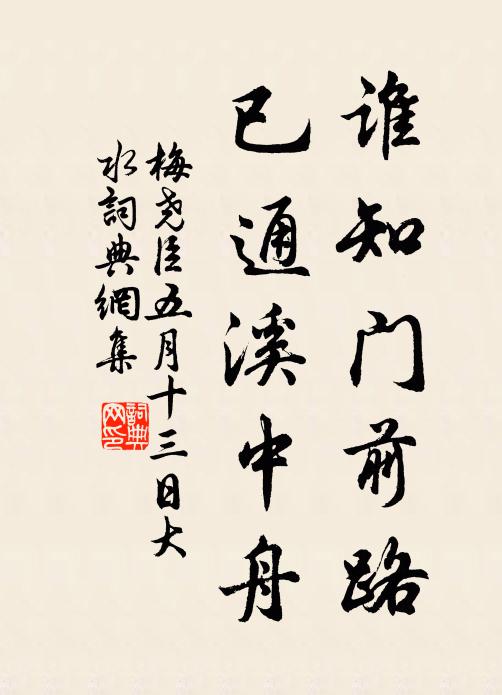 谁知门前路
已通溪中舟
梅尧臣五月十三日大
水詞典網集
詞典
网印